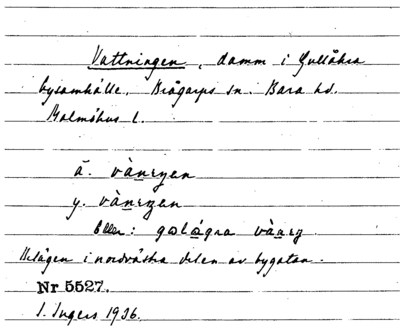 Vattningen, damm i Gullåkra
bysamhälle, Brågarps sn. Bara hd.
Malmöhus l.
ä. vànɛŋen
y. vànɛŋen
Eller: gɷlågra vànɛŋ
Belägen i nordvästra delen av bygatan.
Nr 5527.
I. Ingers 1936.